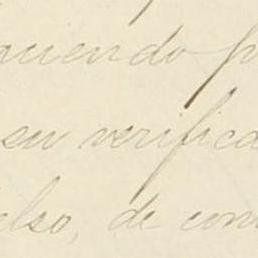 uiendo p
seu verifica
elso, de con